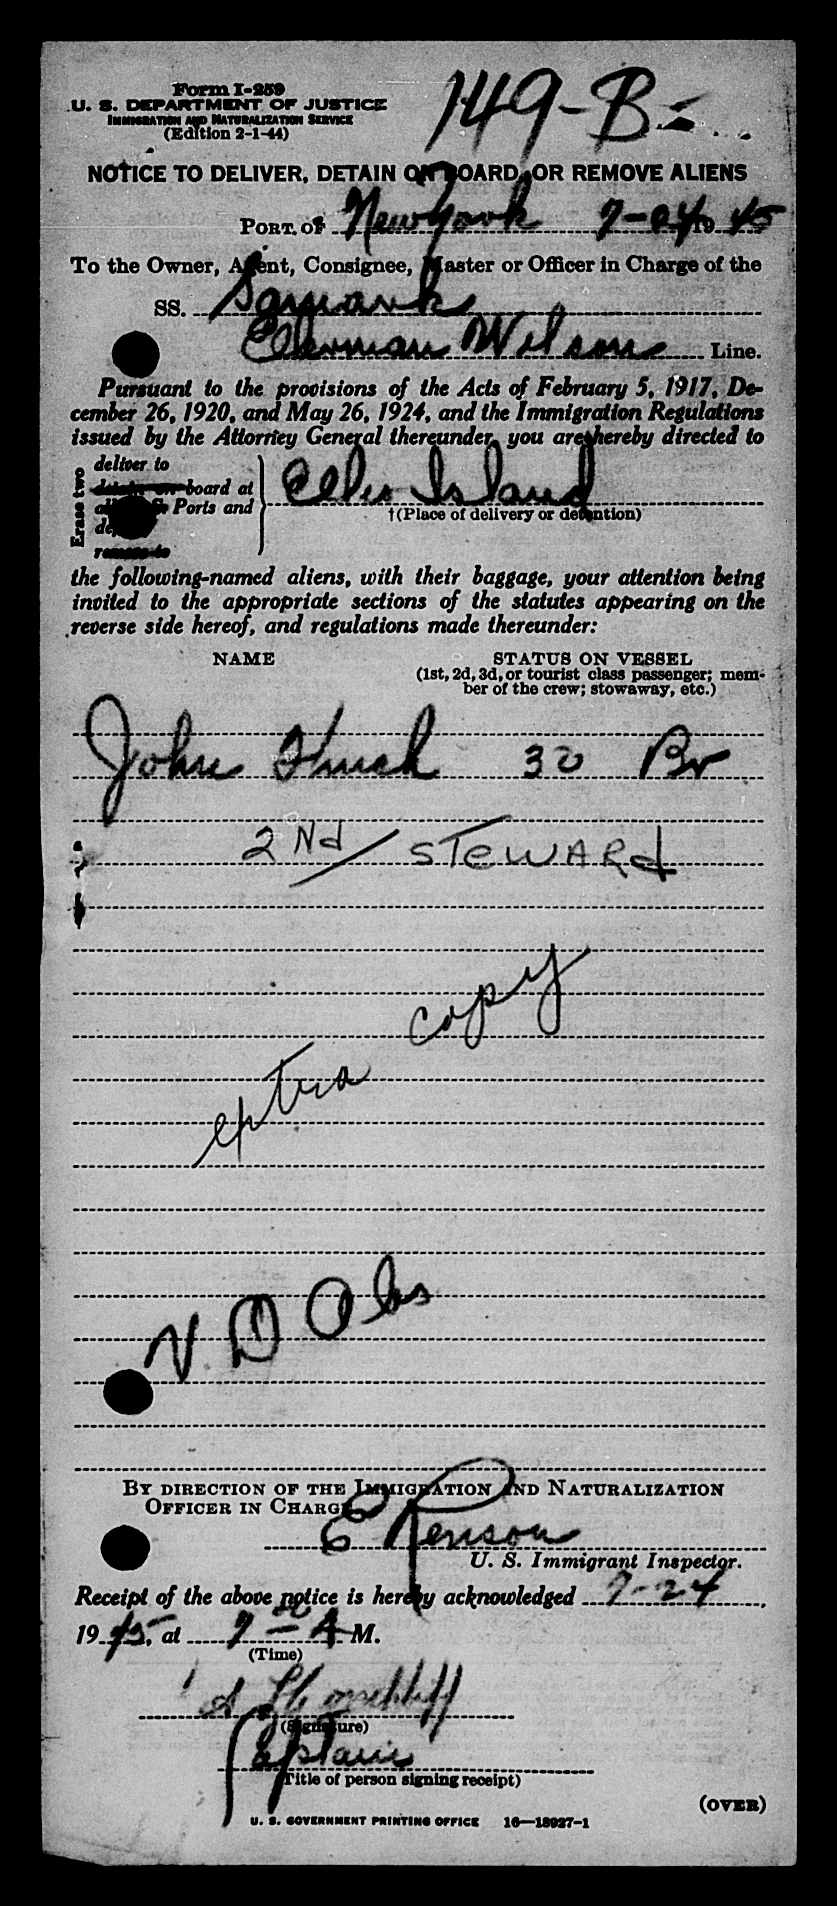 Form I-259
U. S. DEPARTMENT OF JUSTICE
IMMIGRATION AND NATURALIZATION SERVICE
(Edition 2-1-44)
149-B-
NOTICE TO DELIVER, DETAIN ON BOARD, OR REMOVE ALIENS
PORT OF New York 7-24 1945
To the Owner, Agent, Consignee, Master or Officer in Charge of the
SS. Samark
Ellerman Wilson Line.
Pursuant to the provisions of the Acts of February 5, 1917, De-
cember 26, 1920, and May 26, 1924, and the Immigration Regulations
issued by the Attorney General thereunder, you are hereby directed to
Erase two
deliver to
detain on board at
Ports and
remove to
Ellis Island
†(Place of delivery or detention)
the following-named aliens, with their baggage, your attention being
invited to the appropriate sections of the statutes appearing on the
reverse side hereof, and regulations made thereunder:
NAME STATUS ON VESSEL
(1st, 2d, 3d, or tourist class passenger; mem-
ber of the crew; stowaway, etc.)
John 30 Br
2Nd/ STEWARd
extra copy
V D Obs
BY DIRECTION OF THE IMMIGRATION AND NATURALIZATION
OFFICER IN CHARGE
E Renson
U. S. Immigrant Inspector.
Receipt of the above notice is hereby acknowledged 7-24,
1945, at 7 A M.
(Time)
(Signature)
Captain
(Title of person signing receipt)
(OVER)
U. S. GOVERNMENT PRINTING OFFICE 16—18927-1